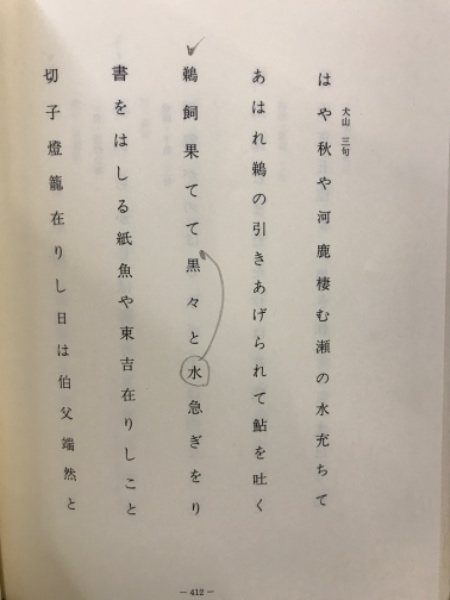 犬山 三句
はや秋や河鹿棲む瀬の水充ちて
あはれ鵜の引きあげられて鮎を吐く
鵜飼果てて黒々と水急ぎをり
書をはしる紙魚や東吉在りしこと
切子燈籠在りし日は伯父端然と
— 412 —